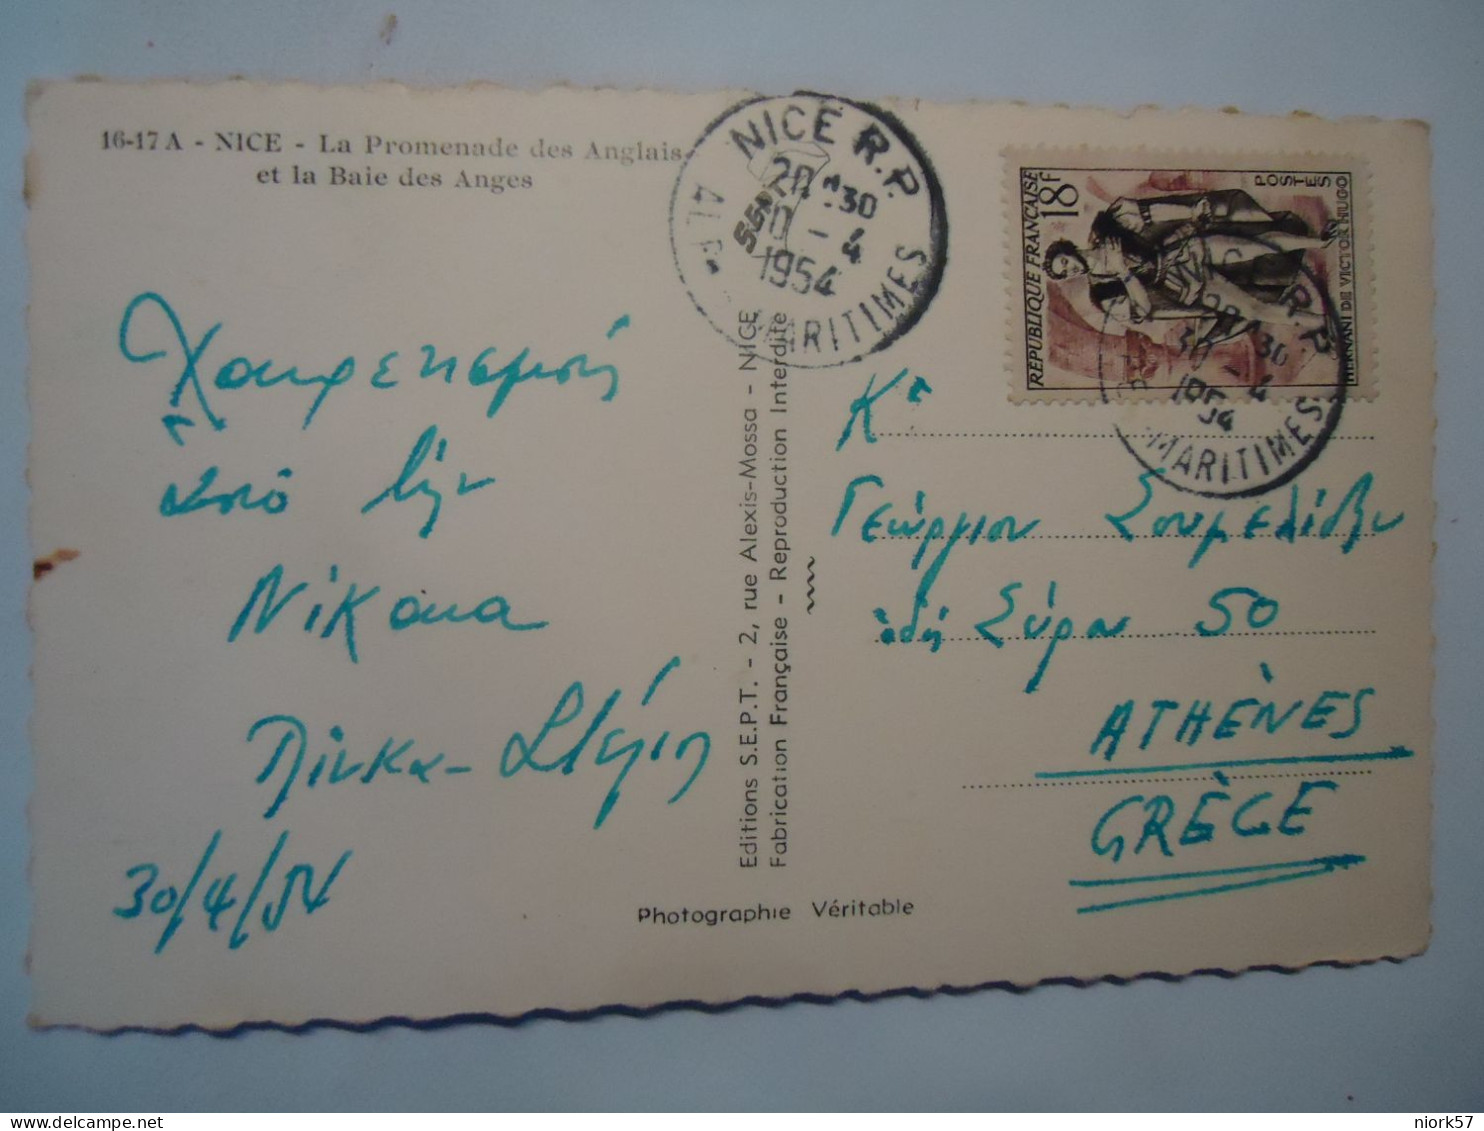 16-17 A - NICE - La Promenade des Anglais
et la Baie des Anges
Χαιρετισμούς
ἀπό τήν
Νίκαια
30/4/54
Editions S.E.P.T. - 2, rue Alexis-Mossa - NICE
Fabrication Française - Reproduction Interdite
Photographie Véritable
NICE R.P.
20 30
1954
ALP. MARITIMES
REPUBLIQUE FRANÇAISE
18f
POSTES
HERNANI DE VICTOR HUGO
NICE R.P.
30 - 4
1954
MARITIMES
Κον
Γεώργιον Σουμελίδην
ὁδὸς Σύρου 50
ATHÈNES
GRÈCE
delcampe.net
niork57